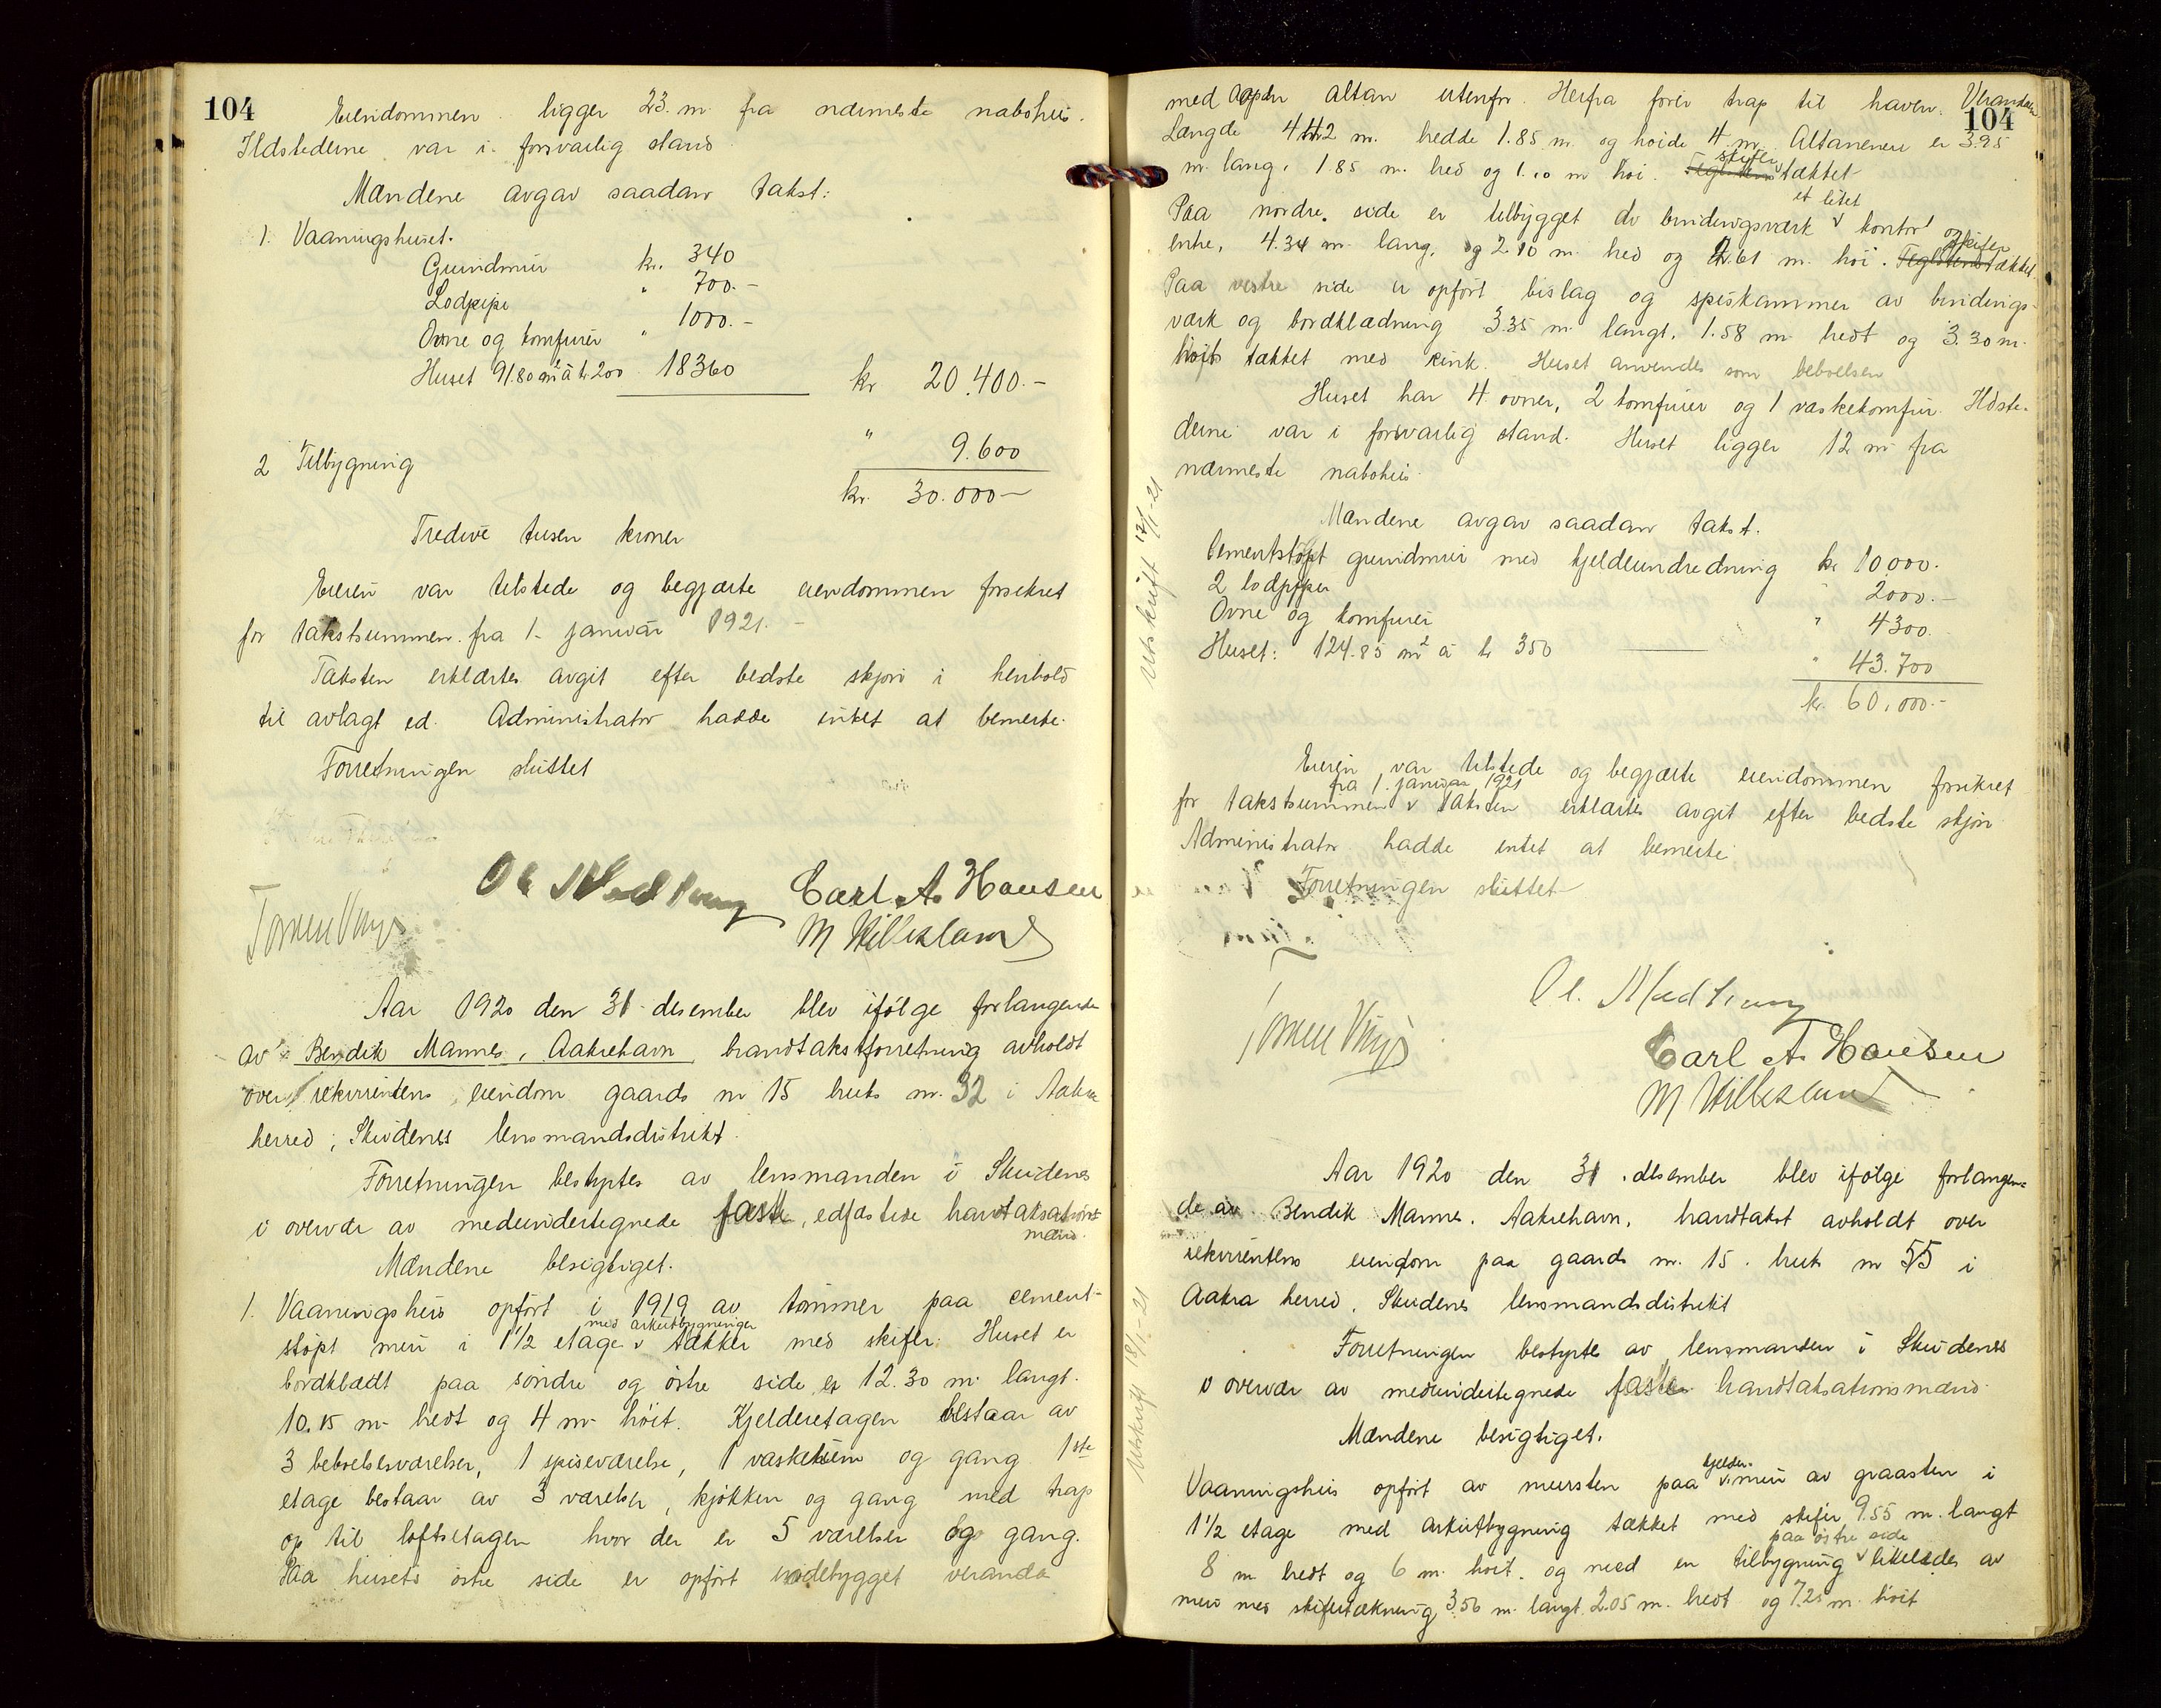 104
Eiendommen ligger 23. m. fra nærmeste nabohus.
Ildstederne var i forsvarlig stand
Mændene avgav saadan takst:
1. Vaaningshuset.
Grundmur kr. 340
Lodpipe " 700.-
Ovne og komfurer " 1000.-
Huset 91.80 m² à kr. 200 18360 kr 20.400.-
2 Tilbygning " 9.600
kr. 30.000-
Tredive tusen kroner
Eieren var tilstede og begjærte eiendommen forsikret
for takstsummen fra 1. januar 1921.-
Taksten erklærtes avgit efter bedste skjøn i henhold
til avlagt ed. Administrator hadde intet at bemerke.
Forretningen sluttet
Carl A. Hansen
M Hilleslannd
Aar 1920 den 31 desember blev ifølge forlangende
av Bendik Mannes, Aakrehavn brandtakstforretning avholdt
over rekvirentens eiendom gaards nr 15 bruks nr. 32 i Aakra
herred, Skudenes lensmandsdistrikt.
Forretningen bestyrtes av lensmanden i Skudenes
i overvær av medundertegnede faste, edfæstede brandtaksations-
mænd.
Mændene besigtiget.
1. Vaaningshus opført i 1919 av tømmer paa cement-
støpt mur i 1 1/2 etage v med arkutbygninger tækket med skifer. Huset er
bordklædt paa søndre og østre side er 12.30 m. langt.
10.15 m. bredt og 4 m. høit. Kjelderetagen bestaar av
3 beboelsesværelser, 1 spiseværelse, 1 vaskerum og gang 1ste
etage bestaar av 3 værelser, kjøkken og gang med trap
op til loftsetagen hvor der er 5 værelser og gang.
Paa husets østre side er opført indebygget veranda
104
med aapen altan utenfor. Herfra fører trap til haven. Verandaen
Længde 4.42 m. bredde 1.85 m. og høide 4 m. Altanenen er 3.95
m. lang, 1.85 m. bred og 1.10 m høi. Teglstens skifer tækket
Paa nordre side er tilbygget av bindingsverk v et litet kontor og
entre, 4.34 m. lang, og 2.10 m. bred og 2.61 m. høi. Teglstens skifer tækket.
Paa vestre side er opført bislag og spiskammer av bindings-
værk og bordklædning 3.35 m. langt, 1.58 m. bredt og 3.30 m.
høit tækket med zink. Huset anvendes som beboelsen
Huset har 4 ovner, 2 komfurer og 1 vaskekomfur. Ildste-
derne var i forsvarlig stand. Huset ligger 12 m. fra
nærmeste nabohus.
Mændene avgav saadan takst.
Cementstøpt grundmur med kjelderindredning kr 10.000.-
2 lodpiper " 2000.-
Ovne og komfurer " 4300.
Huset: 124.85 m² à kr 350 " 43.700
kr. 60.000.-
Utskrift 17/1-21
Eieren var tilstede og begjærte eiendommen forsikret
for takstsummen v fra 1. januar 1921 Taksten erklærtes avgit efter bedste skjøn
Administrator hadde intet at bemerke
Forretningen sluttet
Carl A. Hansen
M Hilleslannd
Aar 1920 den 31. desember blev ifølge forlangen-
de av Bendik Mannes, Aakrehavn, brandtakst avholdt over
rekvirentens eiendom paa gaards nr. 15. bruks nr 55 i
Aakra herred, Skudenes lensmandsdistrikt
Forretningen bestyrtes av lensmanden i Skudenes
i overvær av medundertegnede faste brandtaksationsmænd.
Mændene besigtiget.
Vaaningshus opført av mursten paa v kjelder- mur av graasten i
1 1/2 etage med arkutbygning tækket med skifer 9.55 m. langt
8 m bredt og 6 m. høit. og med en tilbygning v paa østre side likeledes av
mur med skifertækning 3.56 m. langt 2.05 m. bredt og 7.25 m. høit
Utskrift 18/1-21